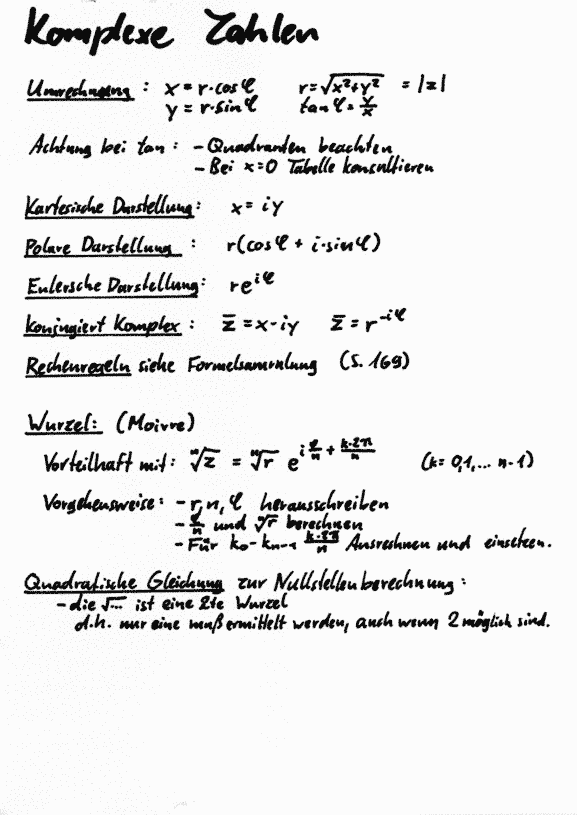 Komplexe Zahlen
Umrechnung : x = r·cos φ r = √x²+y² = |z|
y = r·sin φ tan φ = y/x
Achtung bei tan : - Quadranten beachten
- Bei x=0 Tabelle konsultieren
Kartesische Darstellung : x = iy
Polare Darstellung : r(cos φ + i·sin φ)
Eulersche Darstellung : re^iφ
konjugiert Komplex : z̅ = x - iy z̅ = r^-iφ
Rechenregeln siehe Formelsammlung (S. 169)
Wurzel: (Moivre)
Vorteilhaft mit : ⁿ√z = ⁿ√r e^i φ/n + k·2π/n (k = 0,1,... n-1)
Vorgehensweise : - r, n, φ herausschreiben
- φ/n und ⁿ√r berechnen
- Für k₀ - kₙ₋₁ k·2π/n Ausrechnen und einsetzen.
Quadratische Gleichung zur Nullstellenberechnung :
- die √... ist eine 2te Wurzel
d.h. nur eine muß ermittelt werden, auch wenn 2 möglich sind.